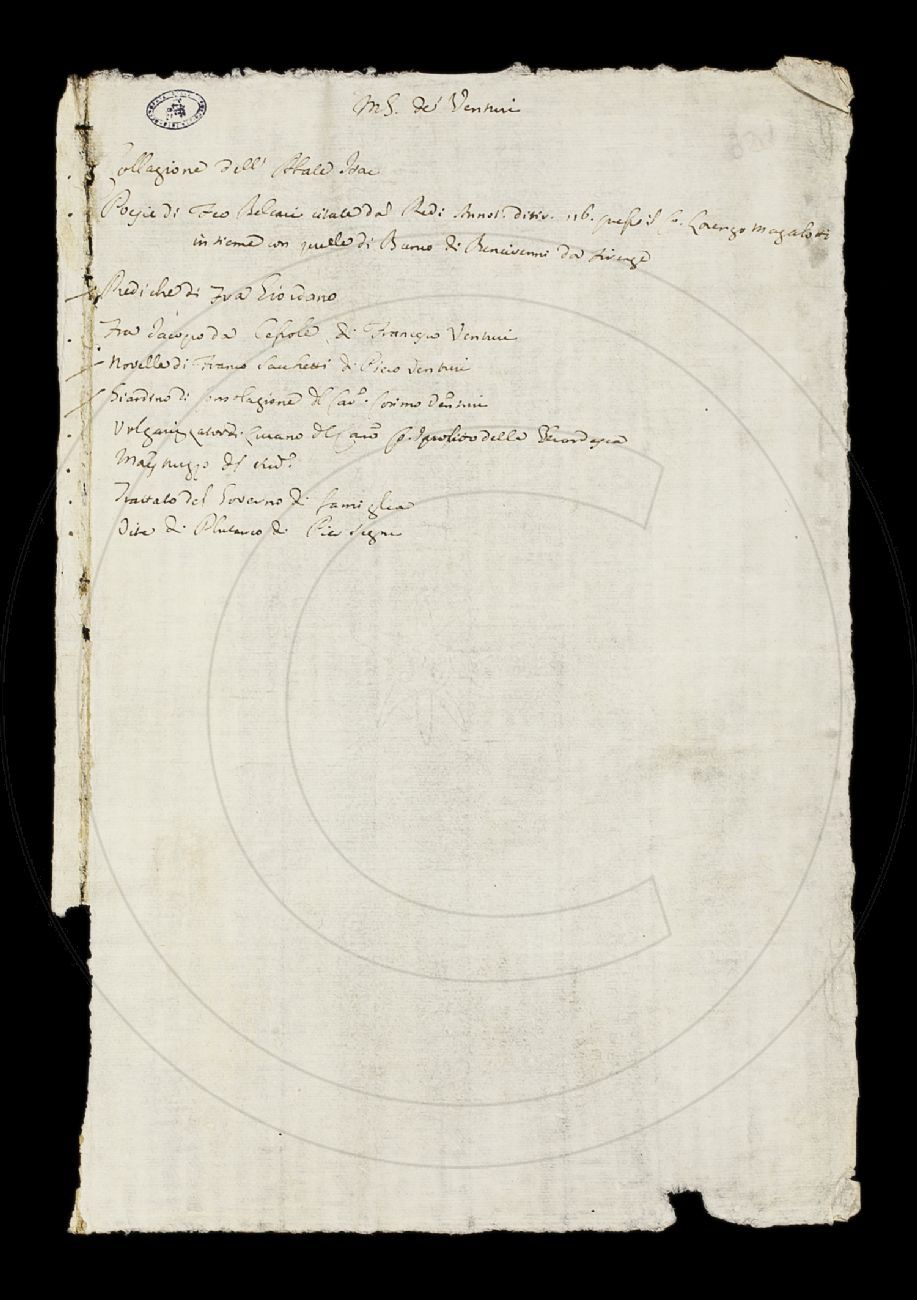 MS. de' Venturi
Collazione dell' Abate Isac
Poesie di Feo Belcari citate dal Redi Annot. ditir. 116. presso il Co. Lorenzo Magalotti
insieme con quelle di Banco di Bencivenni da Firenze
Prediche di Fra Giordano
Fra Jacopo da Cessole di Francesco Venturi
Novelle di Franco Sacchetti di Piero Venturi
Giardino di consolazione del Cav.o Cosimo Venturi
Volgarizzatore di Lucano del
Trattato del Governo di famiglia
Vite di Plutarco di Pier Segni